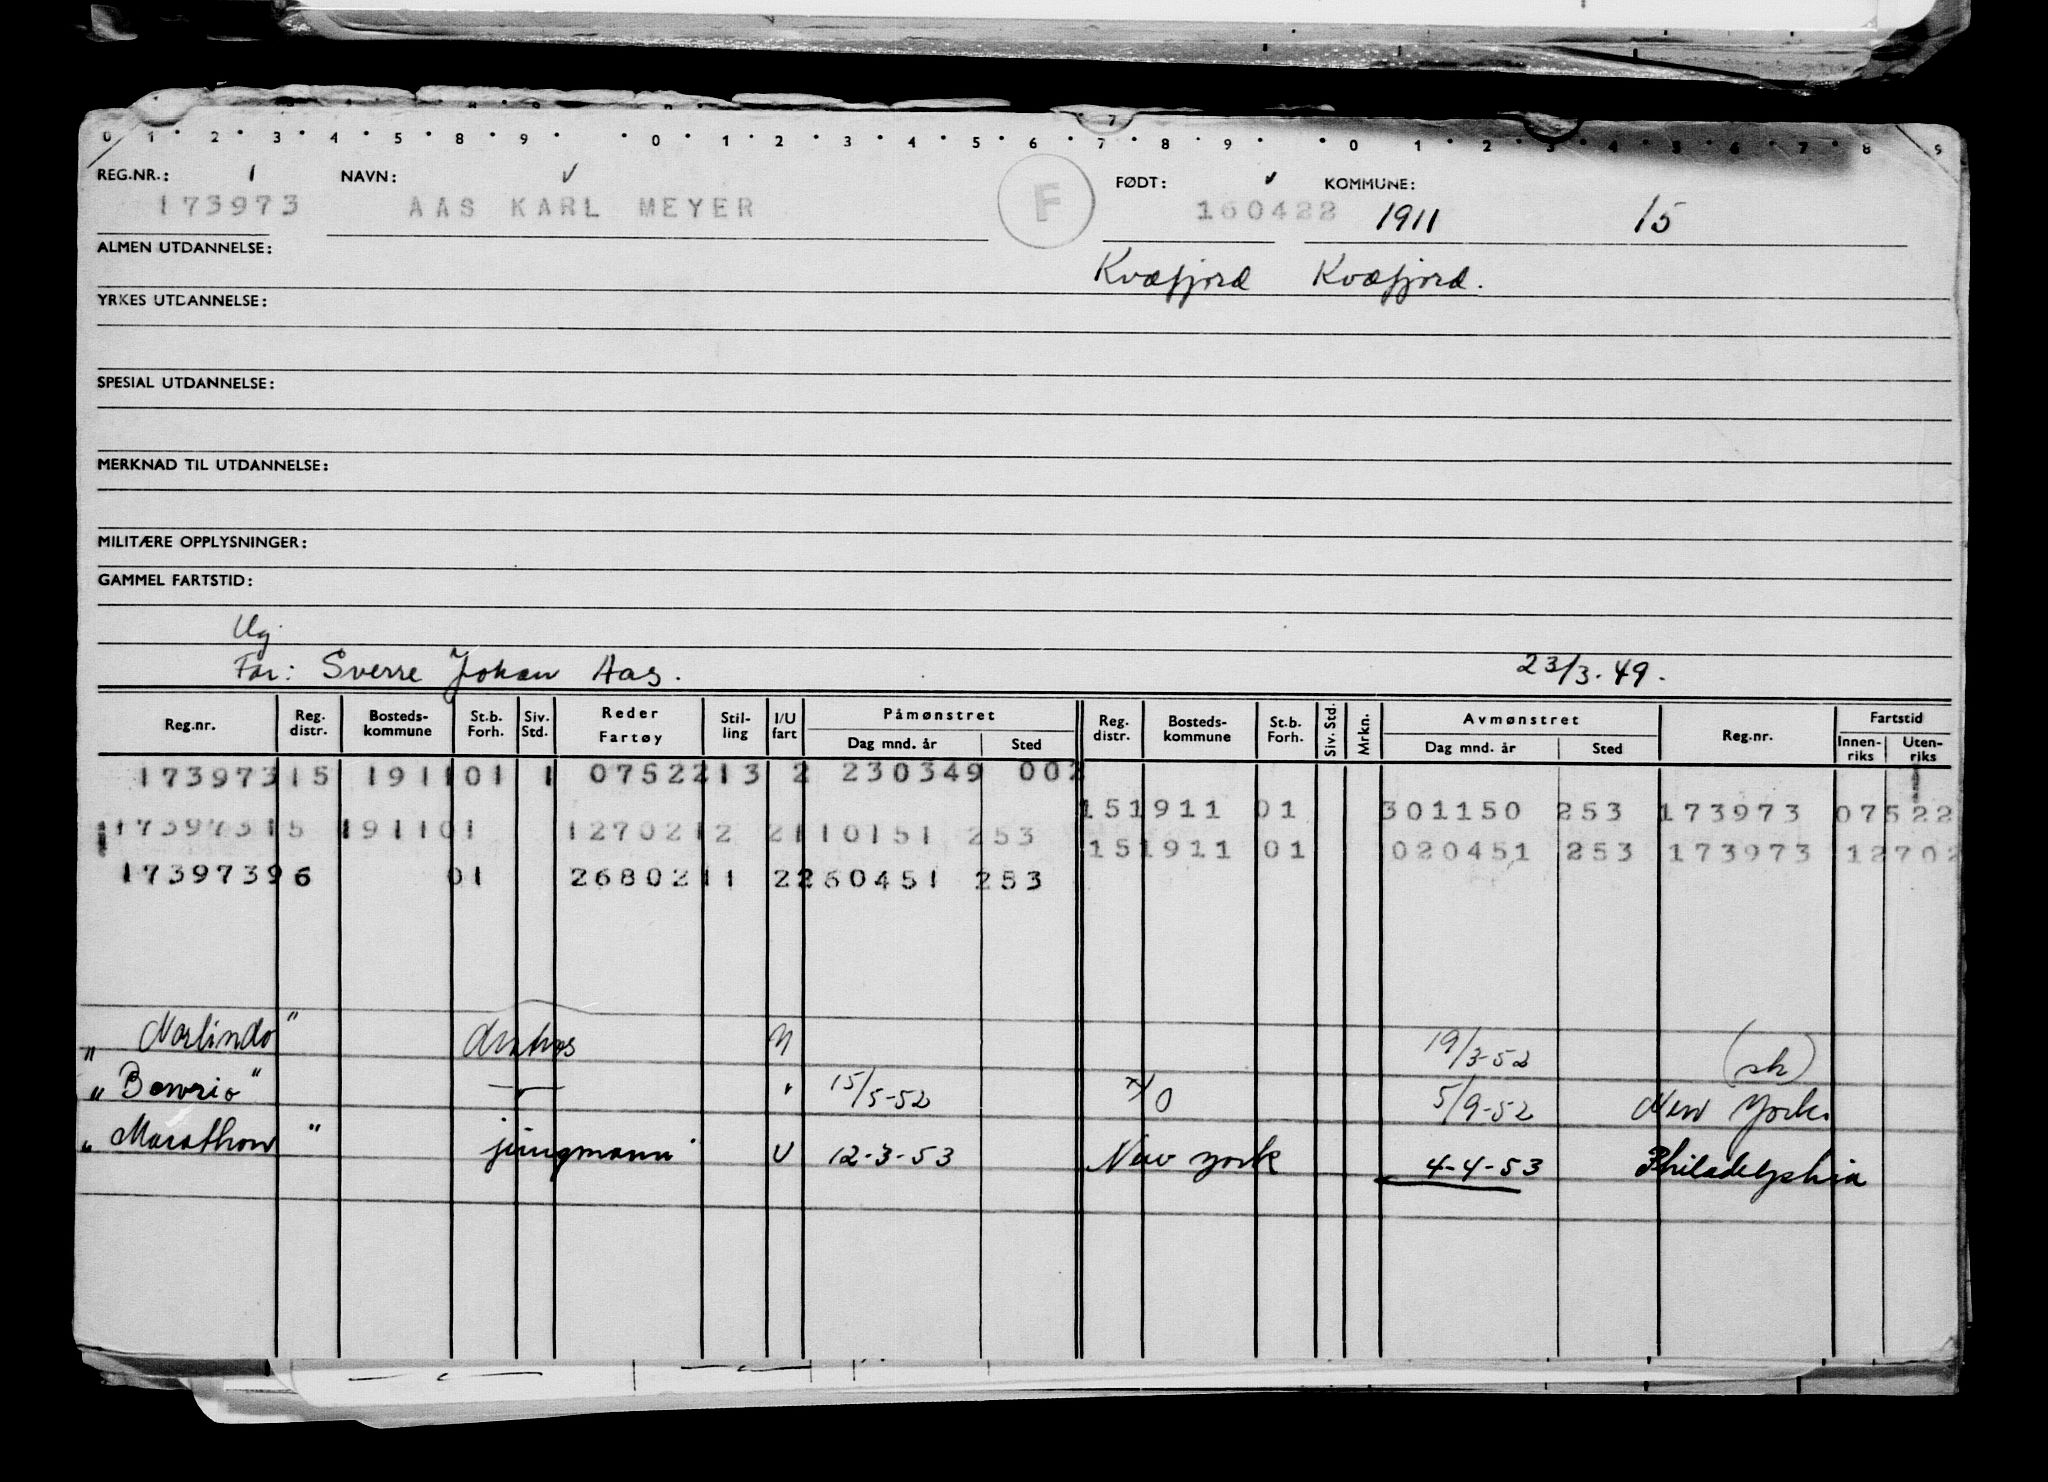 0 1 2 3 4 5 8 9 0 1 2 3 4 5 6 7 8 9 0 1 2 3 4 5 6 7 8 9
REG.NR.: 1 NAVN: FØDT: KOMMUNE:
173973 AAS KARL MEYER F 160422 1911 15
ALMEN UTDANNELSE: Kvæfjord Kvæfjord.
YRKES UTDANNELSE:
SPESIAL UTDANNELSE:
MERKNAD TIL UTDANNELSE:
MILITÆRE OPPLYSNINGER:
GAMMEL FARTSTID:
Ug.
Far: Sverre Johan Aas. 23/3.49.
Reg.nr. Reg. distr. Bosteds- kommune St.b. Forh. Siv. Std. Reder Fartøy Stil- ling I/U fart Påmønstret Dag mnd. år Sted Reg. distr. Bosteds- kommune St.b. Forh. Siv. Std. Mrkn. Avmønstret Dag mnd. år Sted Reg.nr. Fartstid Innen- riks Uten- riks
173973 15 1911 01 1 07522 13 2 230349 002
151911 01 301150 253 173973 07522
173973 15 1911 01 12702 12 2 110151 253
151911 01 020451 253 173973 12702
173973 96 01 26802 11 2 260451 253
"Norlindo" 19/3-52 (sk)
" " 15/5-52 5/9-52 New York.
"Marathon" jungmann U 12-3-53 New York 4-4-53 Philadelphia